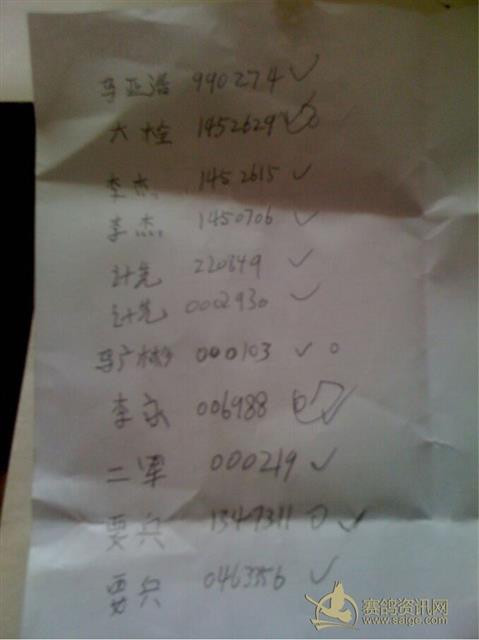 马亚浩 990274 ✓
大栓 1452629 ✓
李杰 1452615 ✓
李杰 1450706 ✓
计先 220849 ✓
计先 0002930 ✓
马广彬 000103 ✓ 0
李家 006988 0 ✓
二军 000219 ✓
要兵 1347311 0 ✓
要兵 0463356 ✓
赛鸽资讯网
www.saige.com